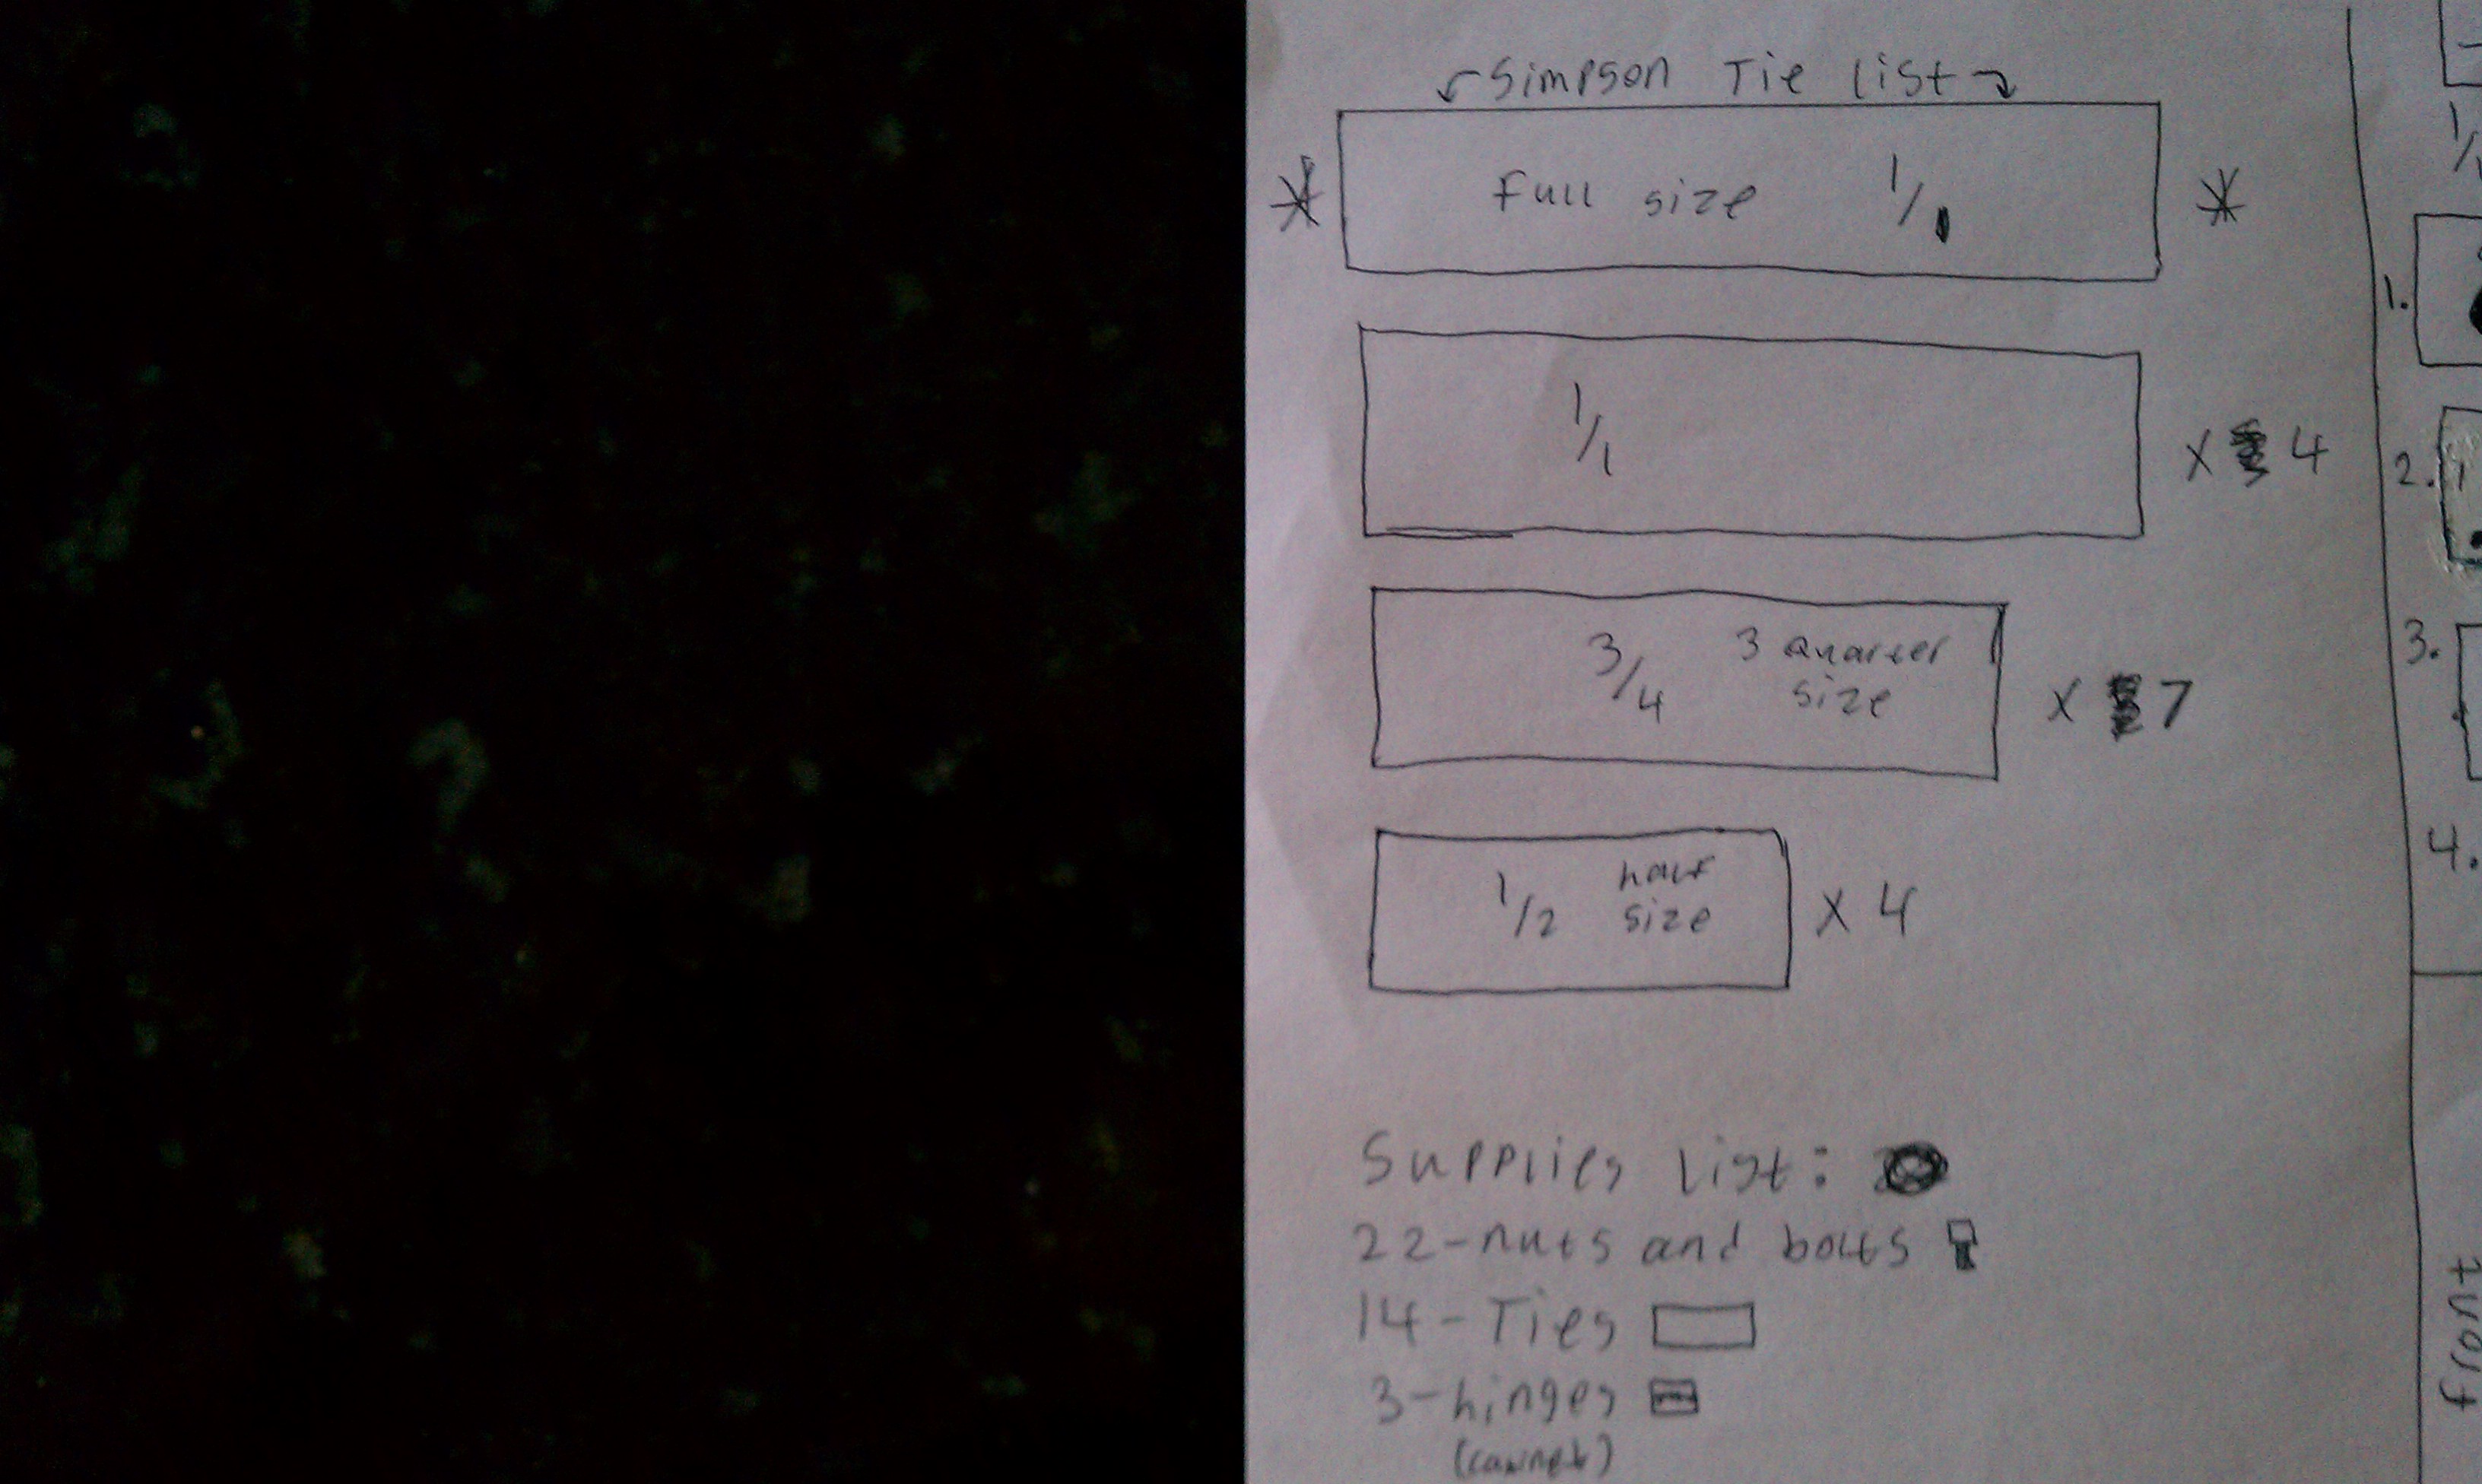 Simpson Tie List
Full size 1/1
1/1
x 4
3/4 3 Quarter
size
x 7
1/2 half
size
x 4
Supplies List:
22-nuts and bolts
14-Ties
3-hinges
1/1
1.
2.
3.
4.
front